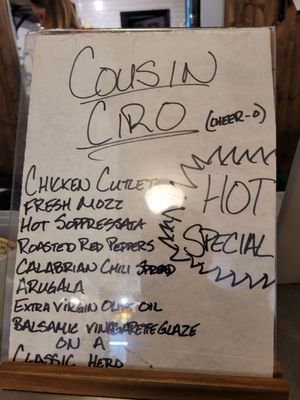 COUSIN
CIRO (CHEER-O)
HOT
SPECIAL
CHICKEN CUTLET
FRESH MOZZ
HOT SOPPRESSATA
ROASTED RED PEPPERS
CALABRIAN CHILI SPREAD
ARUGALA
EXTRA VIRGIN OLIVE OIL
BALSAMIC VINAGARETE GLAZE
ON A
CLASSIC HERO